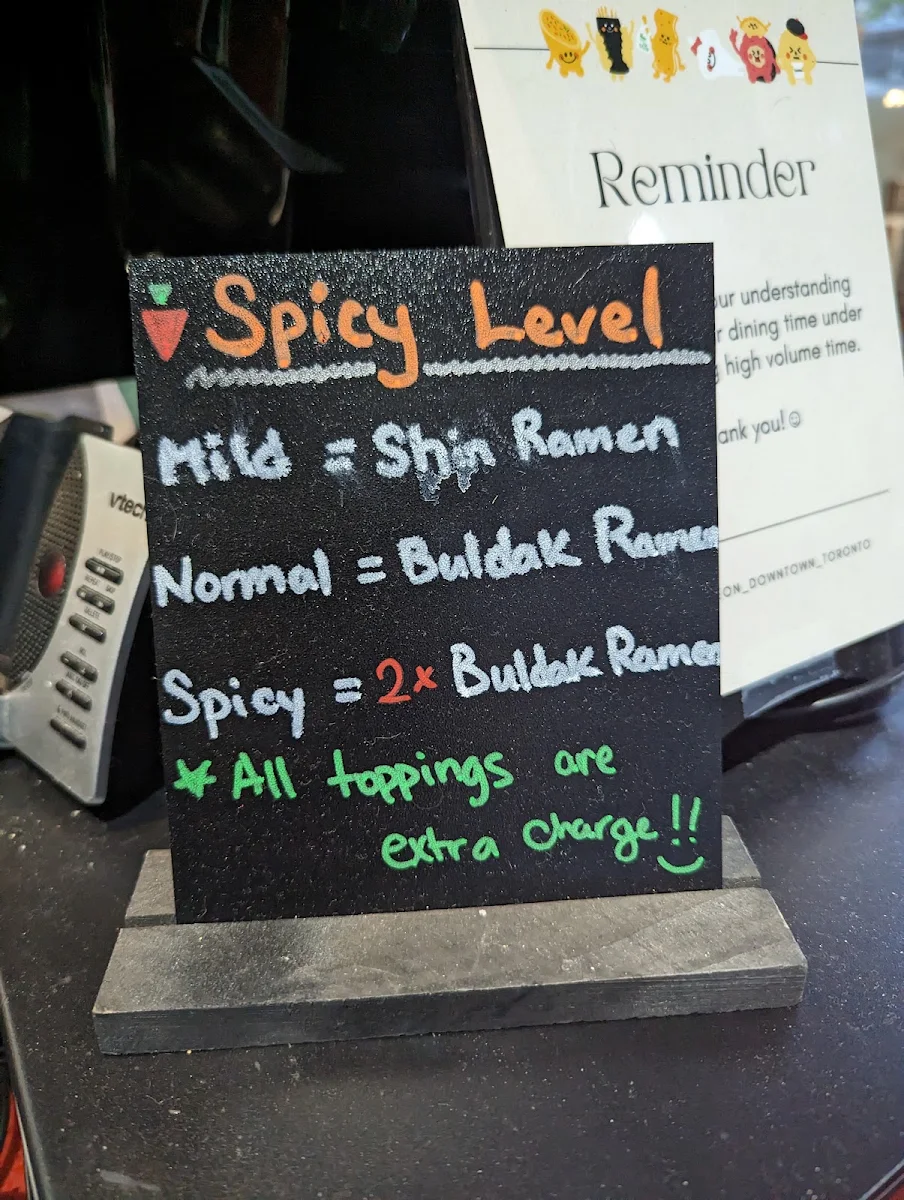 Spicy Level
Mild = Shin Ramen
Normal = Buldak Ramen
Spicy = 2x Buldak Ramen
* All toppings are
extra charge!!
Reminder
understanding
dining time under
high volume time.
you!
ON_DOWNTOWN_TORONTO
vtech